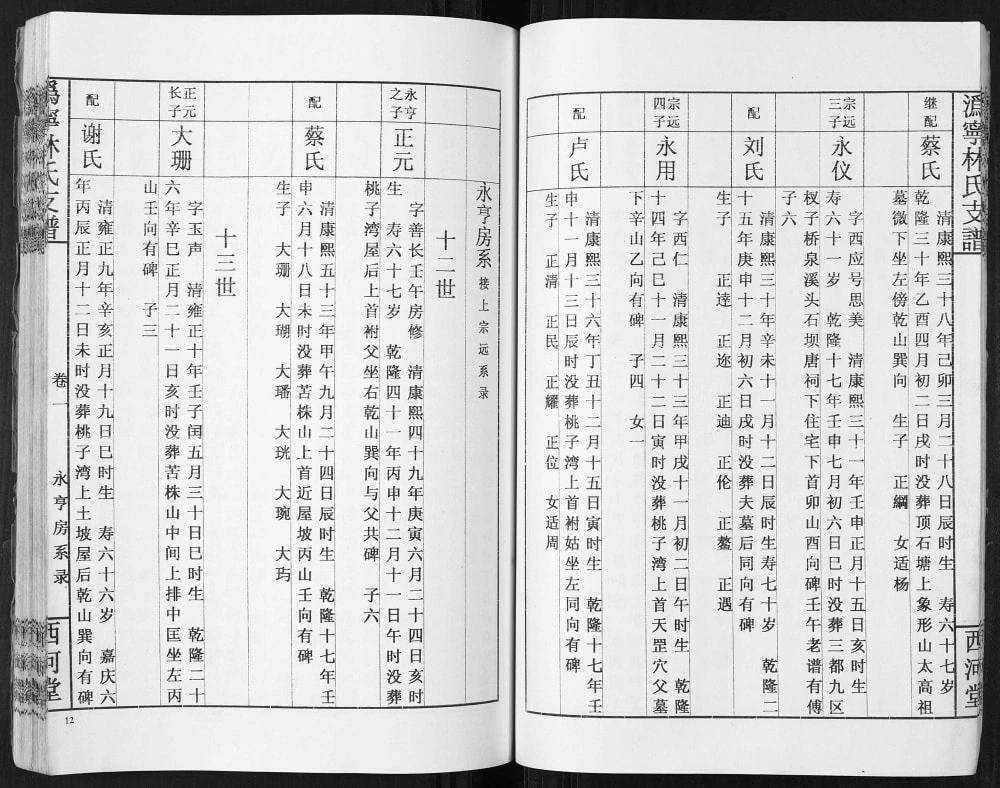 沩宁林氏支谱
西河堂
继配
蔡氏
清康熙三十八年己卯三月二十八日辰时生 寿六十七岁
乾隆三十年乙酉四月初二日戌时没葬顶石塘上象形山太高祖
墓微下坐左傍乾山巽向 生子 正綱 女适杨
宗远
三子
永仪
字西应号思美 清康熙三十一年壬申正月十五日亥时生
寿六十一岁 乾隆十七年壬申七月初六日巳时没葬三都九区
杈子桥泉溪头石坝唐祠下住宅下首卯山酉向碑壬午老谱有傅
子六
配
刘氏
清康熙三十年辛未十一月十二日辰时生寿七十岁 乾隆二
十五年庚申十二月初六日戌时没葬夫墓后同向有碑
生子 正逹 正迩 正迪 正伦 正鳌 正遇
宗远
四子
永用
字西仁 清康熙三十三年甲戌十一月初二日午时生 乾隆
十四年己巳十一月二十二日寅时没葬桃子湾上首天罡穴父墓
下辛山乙向有碑 子四 女一
配
卢氏
清康熙三十六年丁丑十二月十五日寅时生 乾隆十七年壬
申十一月十三日辰时没葬桃子湾上首祔姑坐左同向有碑
生子 正清 正民 正耀 正位 女适周
永亨房系 接上宗远系录
十二世
永亨
之子
正元
字善长壬午房修 清康熙四十九年庚寅六月二十四日亥时
生 寿六十七岁 乾隆四十一年丙申十二月十一日午时没葬
桃子湾屋后上首祔父坐右乾山巽向与父共碑 子六
配
蔡氏
清康熙五十三年甲午九月二十四日辰时生 乾隆十七年壬
申六月十八日未时没葬苦株山上首近屋坡丙山壬向有碑
生子 大珊 大瑚 大璠 大珖 大琬 大玙
十三世
正元
长子
大珊
字玉声 清雍正十年壬子闰五月三十日巳时生 乾隆二十
六年辛巳正月二十一日亥时没葬苦株山中间上排中匡坐左丙
山壬向有碑 子三
配
谢氏
清雍正九年辛亥正月十九日巳时生 寿六十六岁 嘉庆六
年丙辰正月十二日未时没葬桃子湾上土坡屋后乾山巽向有碑
沩宁林氏支谱
卷一
永亨房系录
西河堂
12